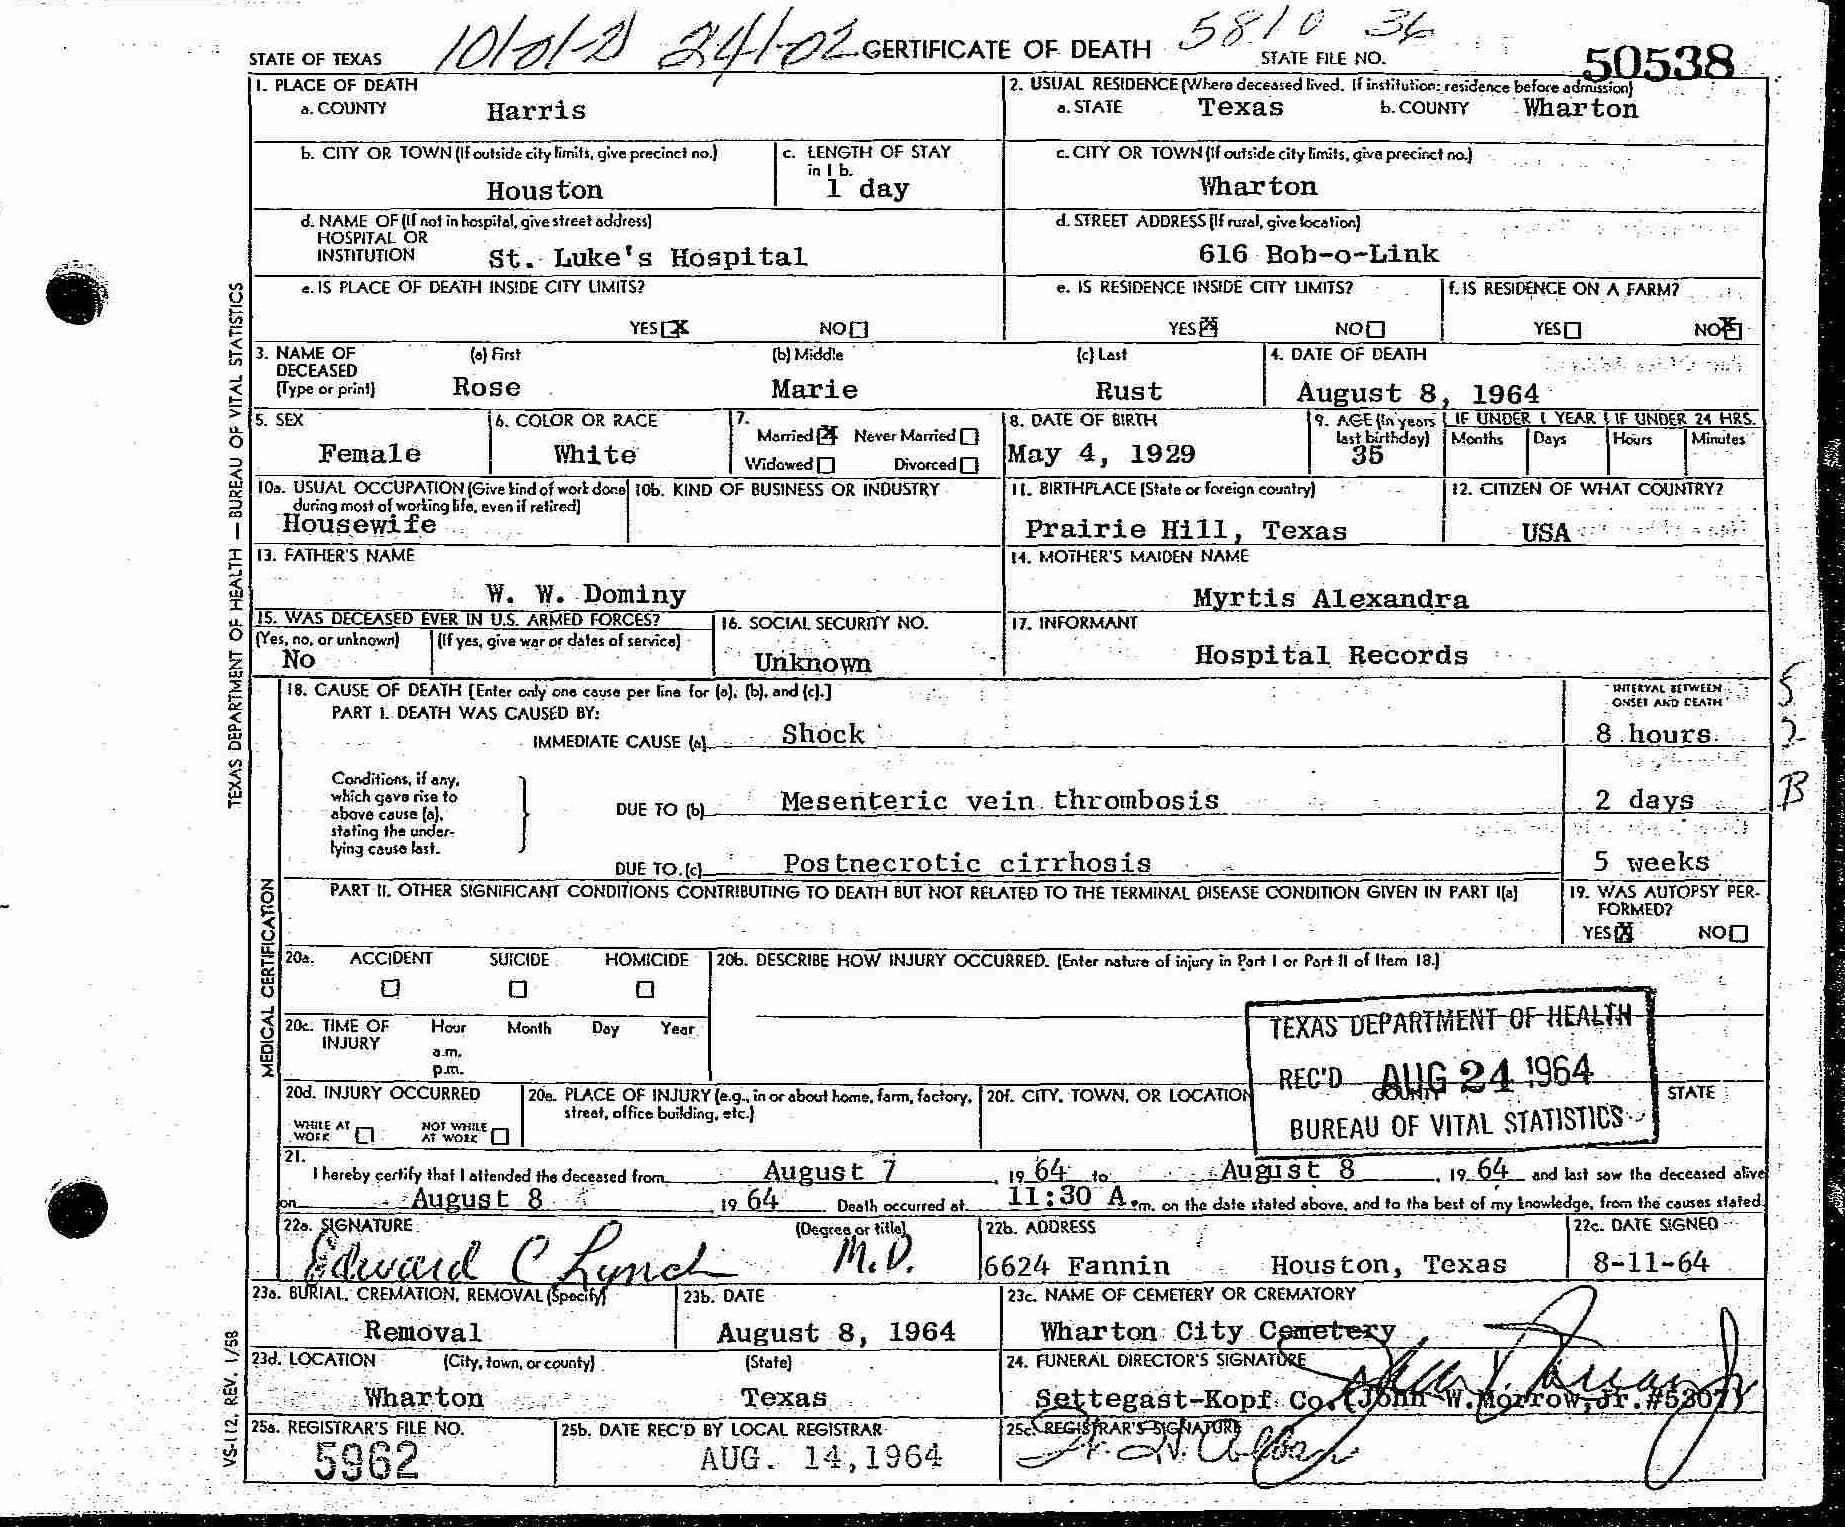 STATE OF TEXAS
CERTIFICATE OF DEATH
5810 36
STATE FILE NO.
50538
1. PLACE OF DEATH
a. COUNTY
Harris
2. USUAL RESIDENCE (Where deceased lived. If institution: residence before admission)
a. STATE
Texas
b. COUNTY
Wharton
b. CITY OR TOWN (If outside city limits, give precinct no.)
Houston
c. LENGTH OF STAY
in 1 b.
1 day
c. CITY OR TOWN (If outside city limits, give precinct no.)
Wharton
d. NAME OF (If not in hospital, give street address)
HOSPITAL OR
INSTITUTION
St. Luke's Hospital
d. STREET ADDRESS (If rural, give location)
616 Bob-o-Link
e. IS PLACE OF DEATH INSIDE CITY LIMITS?
YES X NO
e. IS RESIDENCE INSIDE CITY LIMITS?
YES X NO
f. IS RESIDENCE ON A FARM?
YES NO X
3. NAME OF
DECEASED
(Type or print)
(a) First
Rose
(b) Middle
Marie
(c) Last
Rust
4. DATE OF DEATH
August 8, 1964
5. SEX
Female
6. COLOR OR RACE
White
7.
Married X Never Married
Widowed Divorced
8. DATE OF BIRTH
May 4, 1929
9. AGE (In years
last birthday)
35
IF UNDER 1 YEAR
Months Days
IF UNDER 24 HRS.
Hours Minutes
10a. USUAL OCCUPATION (Give kind of work done
during most of working life, even if retired)
Housewife
10b. KIND OF BUSINESS OR INDUSTRY
11. BIRTHPLACE (State or foreign country)
Prairie Hill, Texas
12. CITIZEN OF WHAT COUNTRY?
USA
13. FATHER'S NAME
W. W. Dominy
14. MOTHER'S MAIDEN NAME
Myrtis Alexandra
15. WAS DECEASED EVER IN U.S. ARMED FORCES?
(Yes, no, or unknown) (If yes, give war or dates of service)
No
16. SOCIAL SECURITY NO.
Unknown
17. INFORMANT
Hospital Records
18. CAUSE OF DEATH [Enter only one cause per line for (a), (b), and (c).]
PART I. DEATH WAS CAUSED BY:
IMMEDIATE CAUSE (a) Shock
INTERVAL BETWEEN
ONSET AND DEATH
8 hours
5
2
B
Conditions, if any,
which gave rise to
above cause (a),
stating the under-
lying cause last.
DUE TO (b) Mesenteric vein thrombosis
2 days
DUE TO (c) Postnecrotic cirrhosis
5 weeks
PART II. OTHER SIGNIFICANT CONDITIONS CONTRIBUTING TO DEATH BUT NOT RELATED TO THE TERMINAL DISEASE CONDITION GIVEN IN PART I(a)
19. WAS AUTOPSY PER-
FORMED?
YES X NO
20a. ACCIDENT SUICIDE HOMICIDE
20b. DESCRIBE HOW INJURY OCCURRED. (Enter nature of injury in Part I or Part II of Item 18.)
20c. TIME OF
INJURY
Hour Month Day Year
a.m.
p.m.
TEXAS DEPARTMENT OF HEALTH
REC'D AUG 24 1964
BUREAU OF VITAL STATISTICS
20d. INJURY OCCURRED
WHILE AT
WORK
NOT WHILE
AT WORK
20e. PLACE OF INJURY (e.g., in or about home, farm, factory,
street, office building, etc.)
20f. CITY, TOWN, OR LOCATION COUNTY STATE
21.
I hereby certify that I attended the deceased from August 7, 1964 to August 8, 1964 and last saw the deceased alive
on August 8 1964 Death occurred at 11:30 A.m. on the date stated above, and to the best of my knowledge, from the causes stated.
22a. SIGNATURE (Degree or title)
Edward C Lynch M.D.
22b. ADDRESS
6624 Fannin Houston, Texas
22c. DATE SIGNED
8-11-64
23a. BURIAL, CREMATION, REMOVAL (Specify)
Removal
23b. DATE
August 8, 1964
23c. NAME OF CEMETERY OR CREMATORY
Wharton City Cemetery
23d. LOCATION (City, town, or county) (State)
Wharton Texas
24. FUNERAL DIRECTOR'S SIGNATURE
Settegast-Kopf Co. (John W. Morrow, Jr. #5307)
25a. REGISTRAR'S FILE NO.
5962
25b. DATE REC'D BY LOCAL REGISTRAR
AUG. 14, 1964
25c. REGISTRAR'S SIGNATURE
TEXAS DEPARTMENT OF HEALTH — BUREAU OF VITAL STATISTICS
MEDICAL CERTIFICATION
VS-112, REV. 1/58